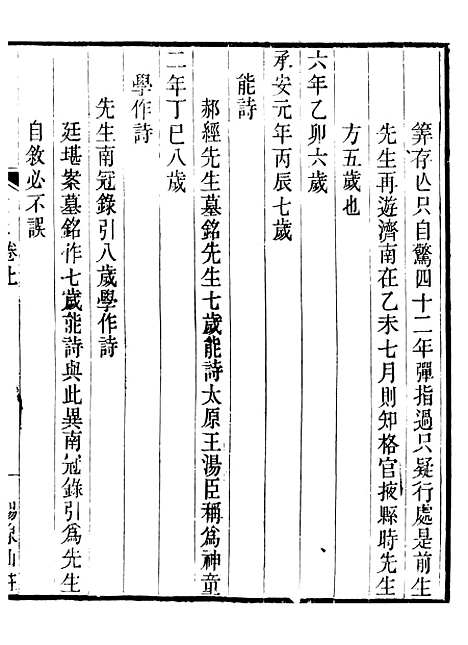 筭存亾只自驚四十二年彈指過只疑行處是前生
先生再遊濟南在乙未七月則知格官掖縣時先生
方五歲也
六年乙卯六歲
承安元年丙辰七歲
能詩
郝經先生墓銘先生七歲能詩太原王湯臣稱爲神童
二年丁巳八歲
學作詩
先生南冠錄引八歲學作詩
廷堪案墓銘作七歲能詩與此異南冠錄引爲先生
自敘必不誤
卷七
陽泉山莊